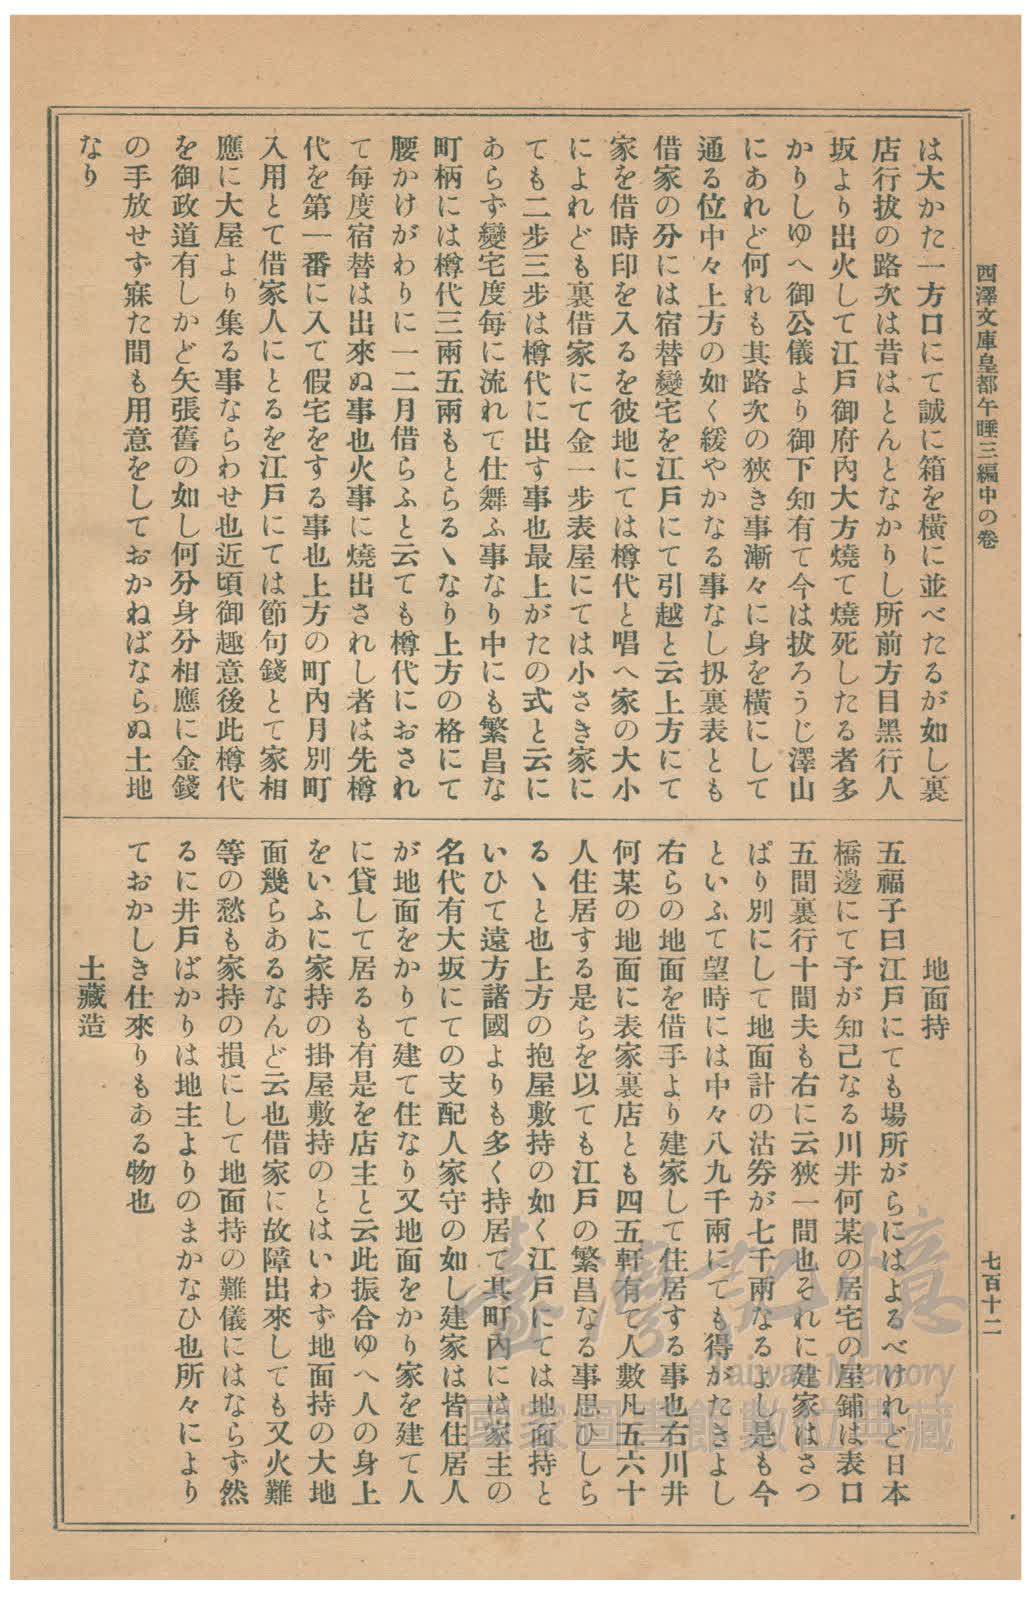 西澤文庫皇都午睡三編中の卷
七百十二
は大かた一方口にて誠に箱を橫に並べたるが如し裏
店行拔の路次は昔はとんとなかりし所前方目黑行人
坂より出火して江戸御府內大方燒て燒死したる者多
かりしゆへ御公儀より御下知有て今は拔ろうじ澤山
にあれど何れも其路次の狹き事漸々に身を橫にして
通る位中々上方の如く緩やかなる事なし扨裏表とも
借家の分には宿替變宅を江戸にて引越と云上方にて
家を借時印を入るを彼地にては樽代と唱へ家の大小
によれども裏借家にて金一步表屋にては小さき家に
ても二步三步は樽代に出す事也最上がたの式と云に
あらず變宅度每に流れて仕舞ふ事なり中にも繁昌な
町柄には樽代三兩五兩もとらるゝなり上方の格にて
腰かけがわりに一二月借らふと云ても樽代におされ
て每度宿替は出來ぬ事也火事に燒出されし者は先樽
代を第一番に入て假宅をする事也上方の町內月別町
入用とて借家人にとるを江戸にては節句錢とて家相
應に大屋より集る事ならわせ也近頃御趣意後此樽代
を御政道有しかど矢張舊の如し何分身分相應に金錢
の手放せず寐た間も用意をしておかねばならぬ土地
なり
地面持
五福子曰江戸にても場所がらにはよるべけれど日本
橋邊にて予が知己なる川井何某の居宅の屋鋪は表口
五間裏行十間夫も右に云狹一間也それに建家はさつ
ぱり別にして地面計の沽券が七千兩なるよし是も今
といふて望時には中々八九千兩にても得がたきよし
右らの地面を借手より建家して住居する事也右川井
何某の地面に表家裏店とも四五軒有て人數凡五六十
人住居する是らを以ても江戸の繁昌なる事思ひしら
るゝと也上方の抱屋敷持の如く江戸にては地面持と
いひて遠方諸國よりも多く持居て其町內には家主の
名代有大坂にての支配人家守の如し建家は皆住居人
が地面をかりて建て住なり又地面をかり家を建て人
に貸して居るも有是を店主と云此振合ゆへ人の身上
をいふに家持の掛屋敷持のとはいわず地面持の大地
面幾らあるなんど云也借家に故障出來しても又火難
等の愁も家持の損にして地面持の難儀にはならず然
るに井戸ばかりは地主よりのまかなひ也所々により
ておかしき仕來りもある物也
土藏造
臺灣記憶
Taiwan Memory
國家圖書館數位典藏